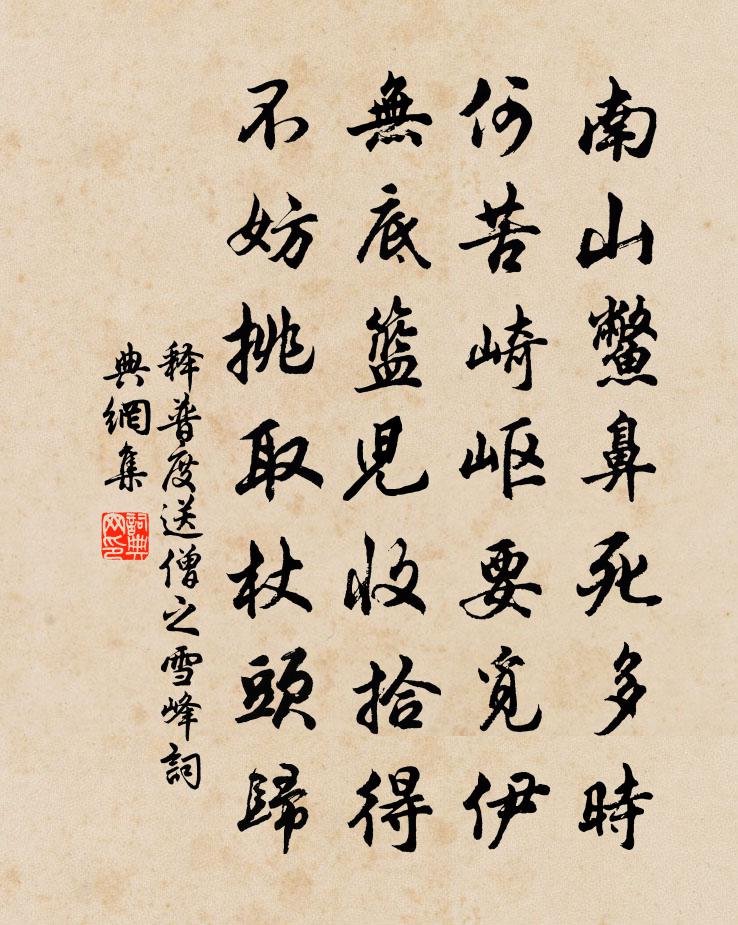 南山鱉鼻死多時
何苦崎岖要覓伊
無底籃兒收拾得
不妨挑取杖頭歸
释普度送僧之雪峰詞
典網集
詞典
网印